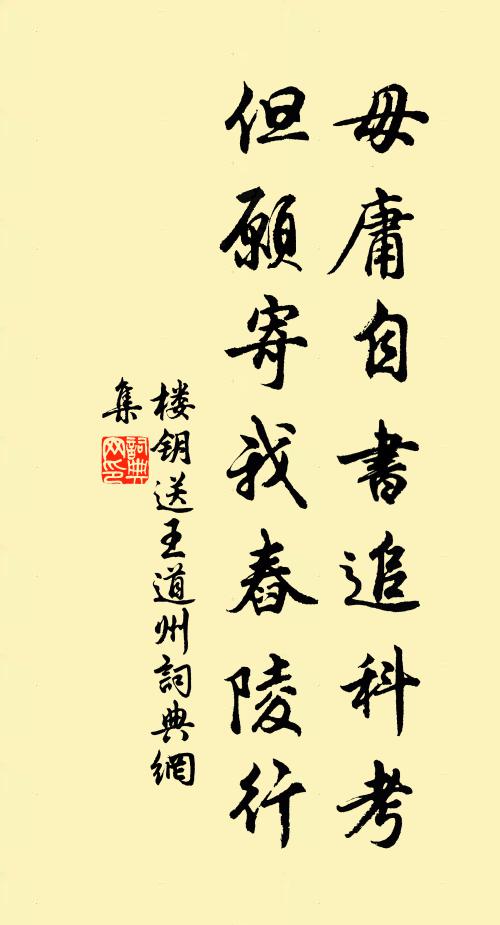 毋庸自書追科考
但願寄我舂陵行
楼钥送王道州詞典網
集
詞典網印